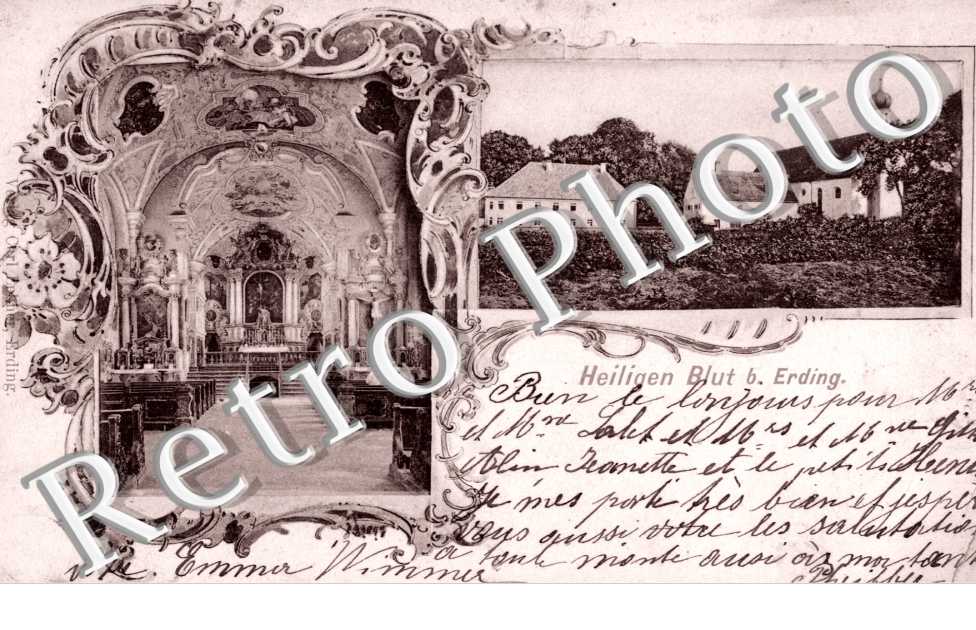 Retro Photo
Erding.
Heiligen Blut b. Erding.
Bien le bonjours pour Mr
et Mme et Mrs et Mme
Alin Jeanette et le petits
Je mes porte très bien et jespe
vous aussi votre les salutatio
à toute monte ausi à mor tan
Emmer Wimmer